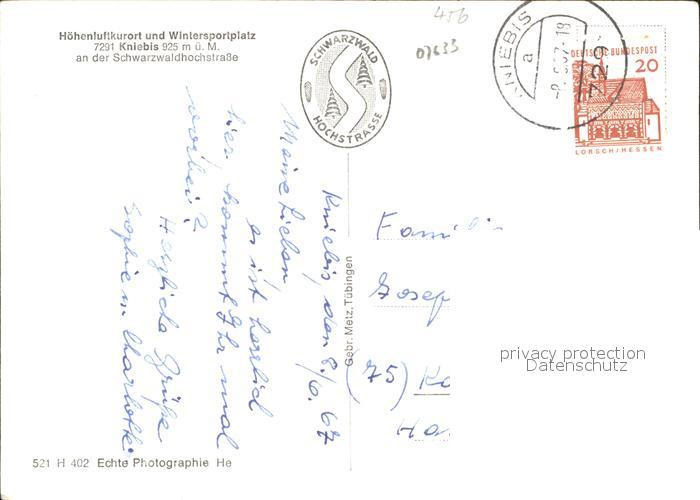 Höhenluftkurort und Wintersportplatz
7291 Kniebis 925 m ü. M.
an der Schwarzwaldhochstraße
456
07633
SCHWARZWALD
HOCHSTRASSE
KNIEBIS
a
729
DEUTSCHE BUNDESPOST
20
LORSCH/HESSEN
Kniebis, den 8./6. 67
Meine Lieben
es ist herrlich
hier, kommt Ihr mal
vorbei?
Herzliche Grüße
Sophie u. Charlotte
Gebr. Metz, Tübingen
Famili
Josep
(75) Ka
Ha
privacy protection
Datenschutz
521 H 402 Echte Photographie He